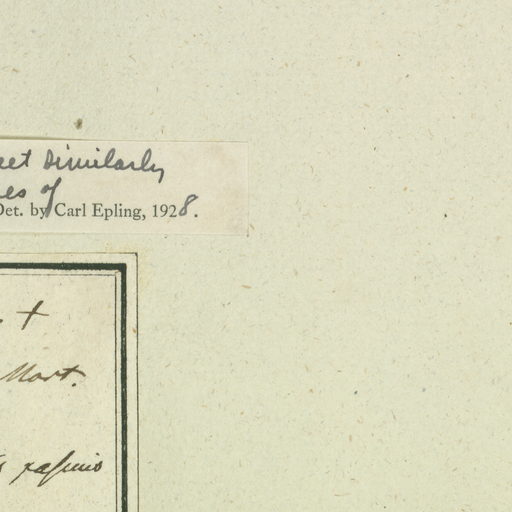 eet similarly
es of
Det. by Carl Epling, 1928.
. +
Mart.
s rasius